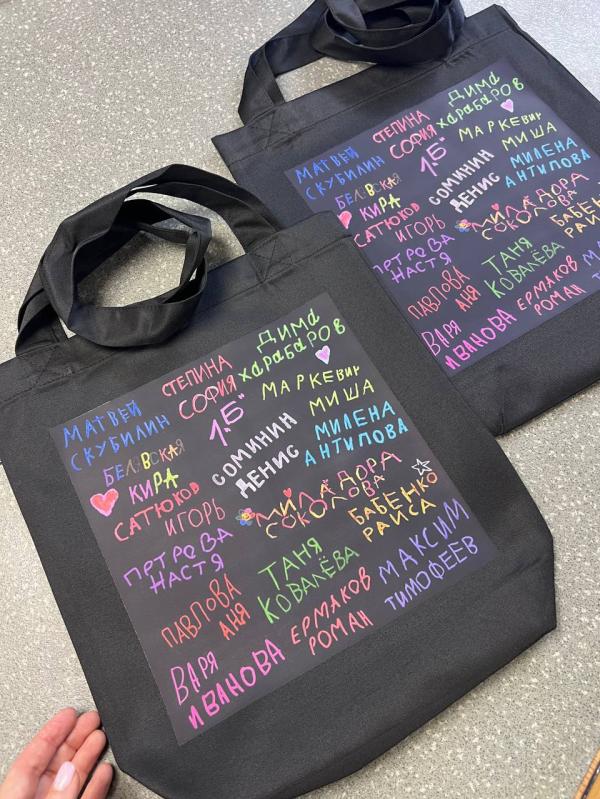 ДИМА
ХАРАБАРОВ
СТЕПИНА
СОФИЯ
МАТВЕЙ
СКУБИЛИН
1"Б"
МАРКЕВИЧ
МИША
БЕЛЯВСКАЯ
КИРА
СОМИНИН
ДЕНИС
МИЛЕНА
АНТИПОВА
САТЮКОВ
ИГОРЬ
МИЛАДОРА
СОКОЛОВА
БАБЕНКО
РАИСА
ПЕТРОВА
НАСТЯ
ТАНЯ
КОВАЛЁВА
МАКСИМ
ТИМОФЕЕВ
ПАВЛОВА
АНЯ
ЕРМАКОВ
РОМАН
ВАРЯ
ИВАНОВА
ДИМА
ХАРАБАРОВ
СТЕПИНА
СОФИЯ
МАТВЕЙ
СКУБИЛИН
1"Б"
МАРКЕВИЧ
МИША
БЕЛЯВСКАЯ
КИРА
СОМИНИН
ДЕНИС
МИЛЕНА
АНТИПОВА
САТЮКОВ
ИГОРЬ
МИЛАДОРА
СОКОЛОВА
БАБЕНКО
РАИСА
НАСТЯ
ТАНЯ
КОВАЛЁВА
ПАВЛОВА
АНЯ
ЕРМАКОВ
РОМАН
ВАРЯ
ИВАНОВА